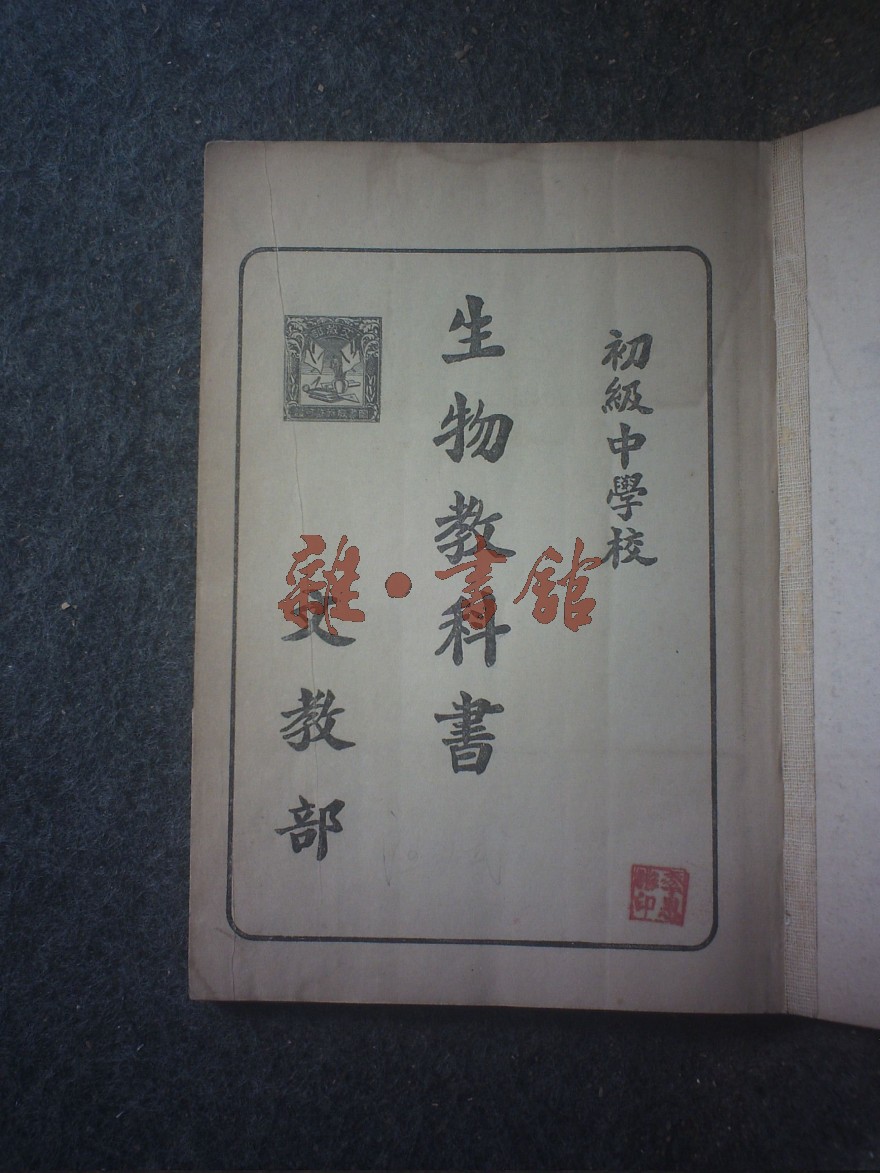 初級中學校
生物教科書
文教部
雜·書館